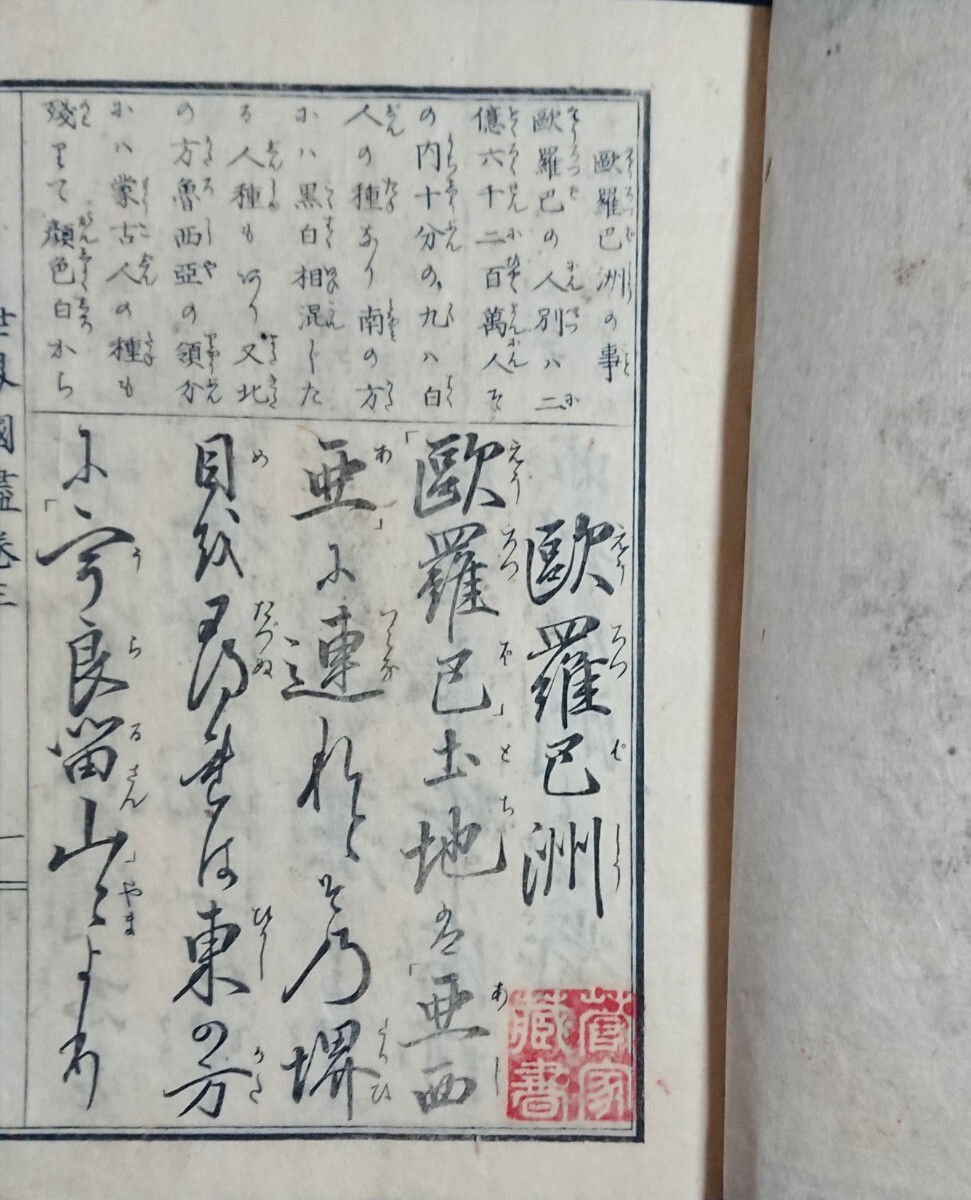 歐羅巴洲の事
歐羅巴の人別ハ二
億六十二百萬人そ
の内十分の九ハ白
人の種なり南の方
にハ黒白相混じた
る人種もあり又北
の方魯西亞の領分
にハ蒙古人の種も
殘りて顔色白から
歐羅巴洲
「歐羅巴」土地は「亜西
亜」に連れどその堺
目を尋れば東の方
に「宇良畄山」〻より
菅家
藏書
世界國盡卷三
一